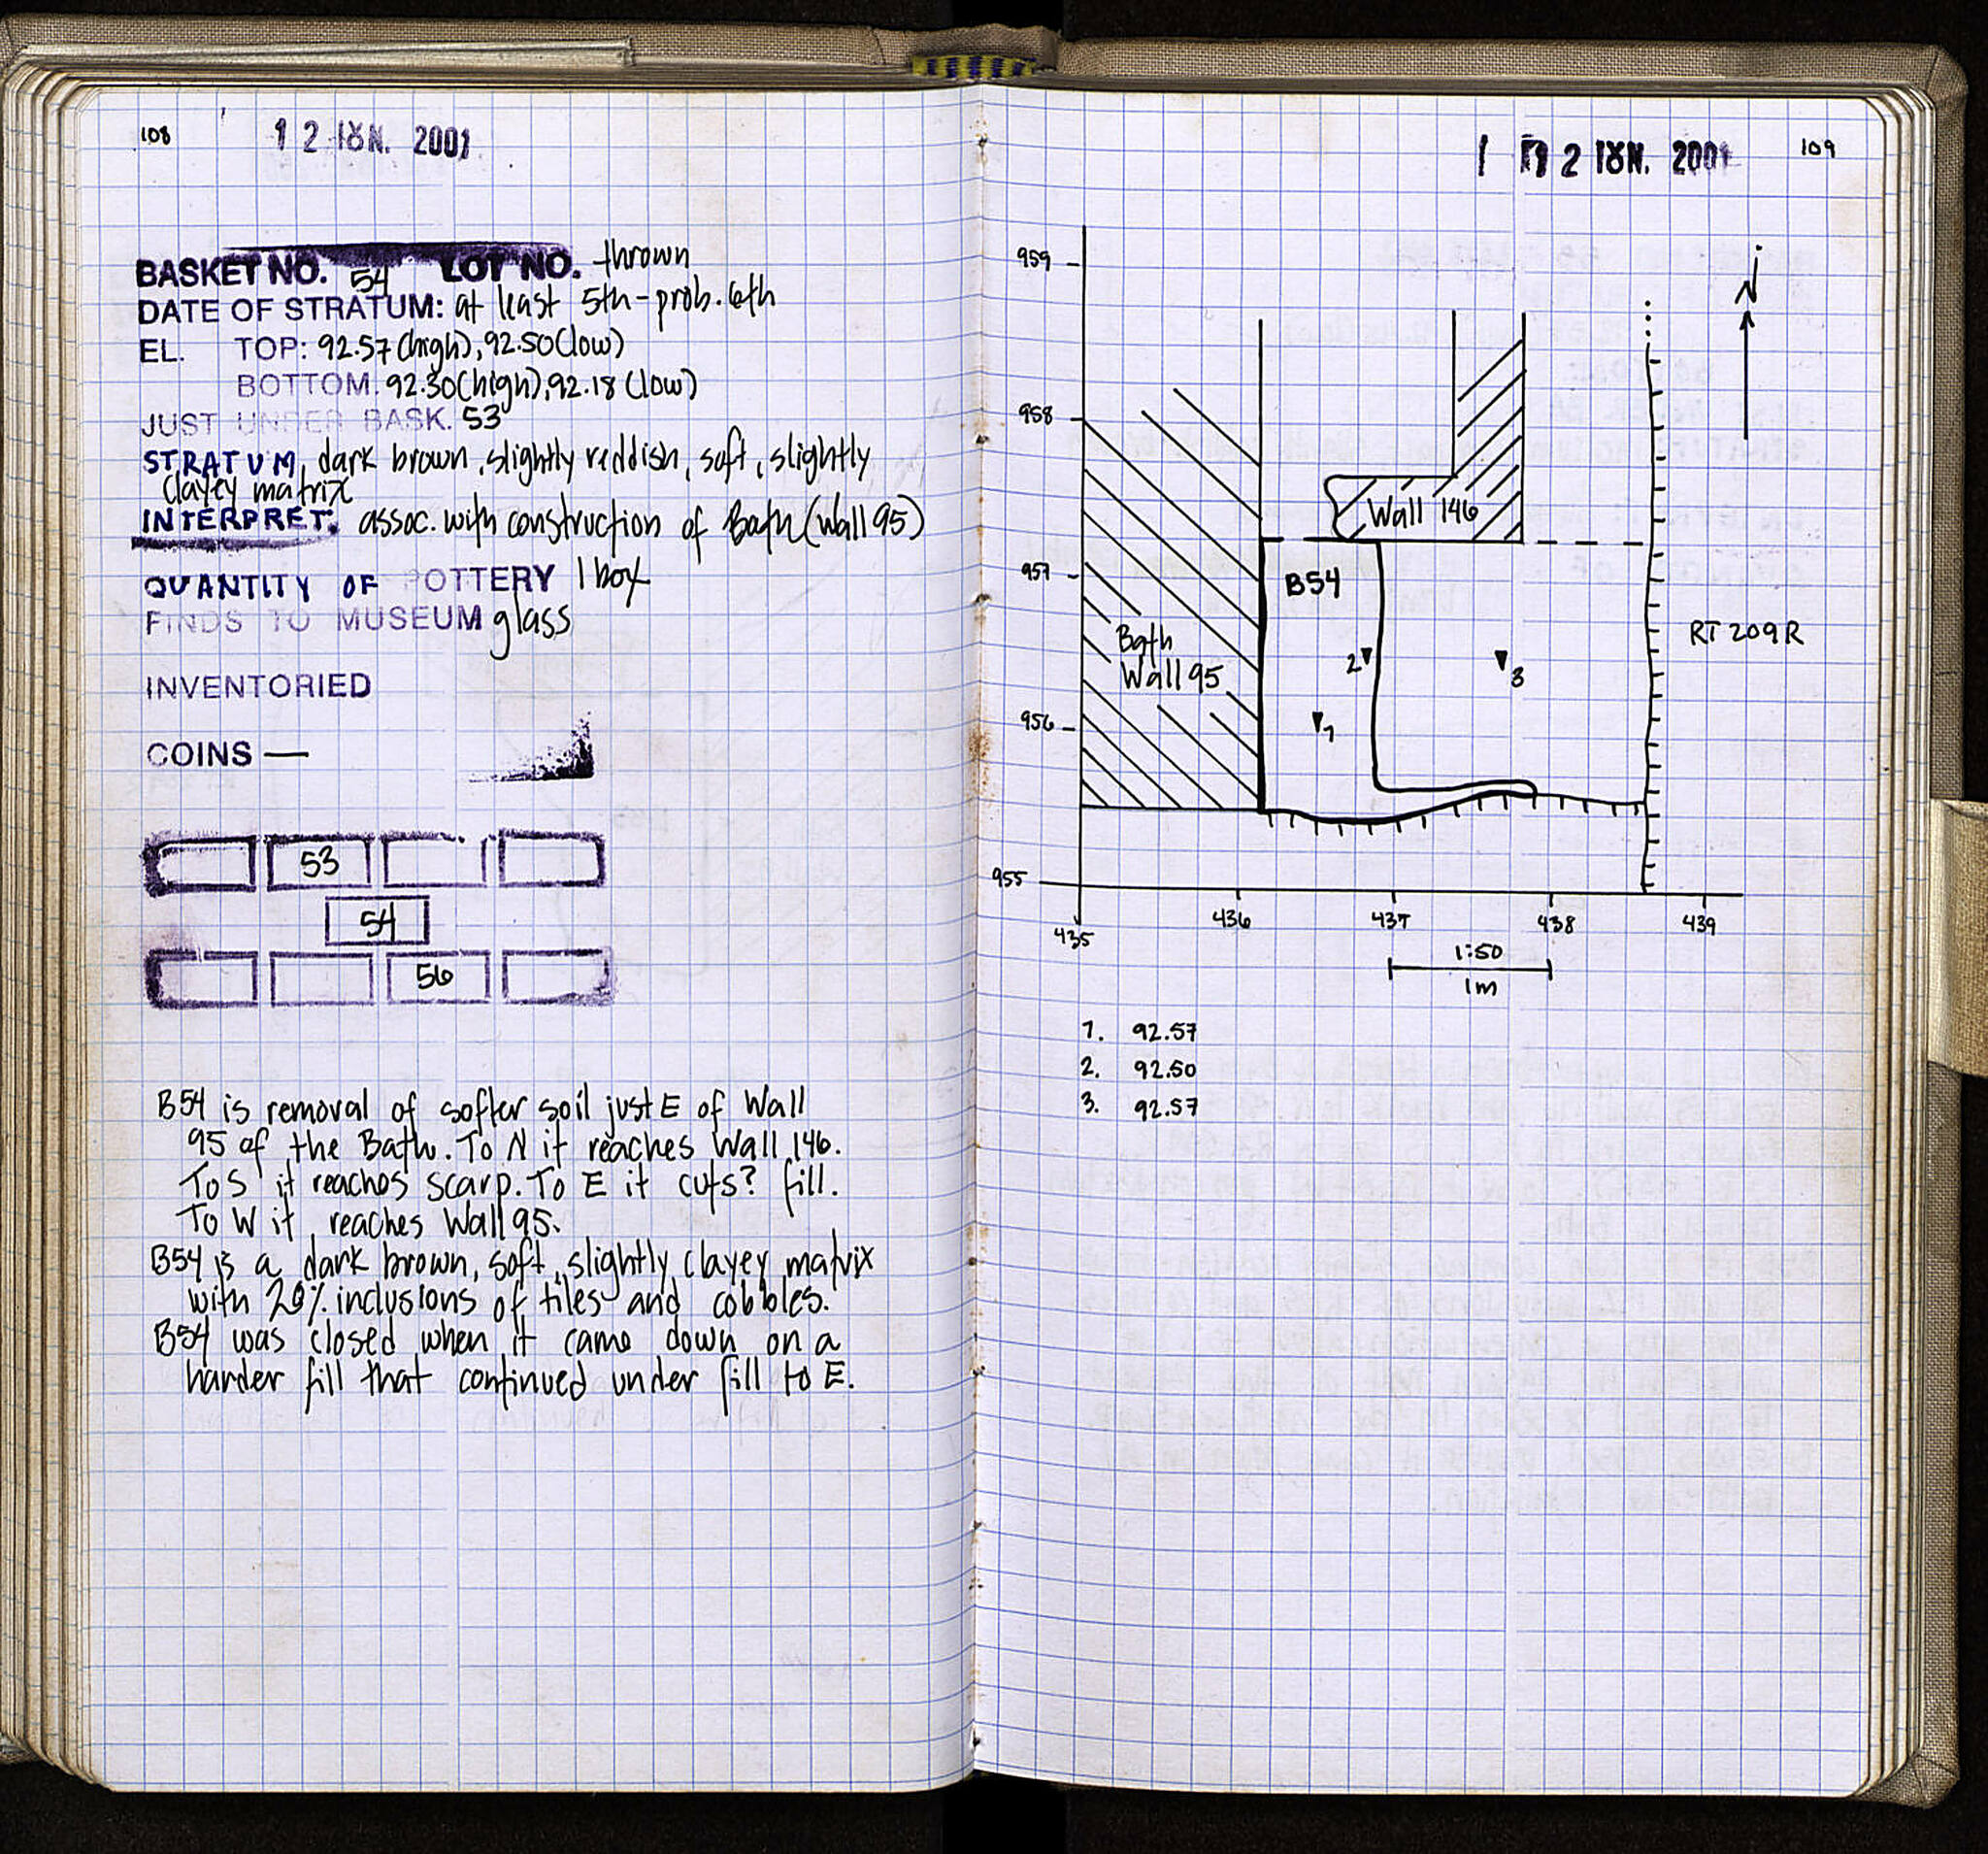 108
12 ΙΟΥΝ. 2001
BASKET NO. 54 LOT NO. thrown
DATE OF STRATUM: at least 5th-prob. 6th
EL. TOP: 92.57 (high), 92.50 (low)
BOTTOM. 92.30 (high), 92.18 (low)
JUST UNDER BASK. 53
STRATUM, dark brown, slightly reddish, soft, slightly
clayey matrix
INTERPRET: assoc. with construction of Bath (Wall 95)
QUANTITY OF POTTERY 1 box
FINDS TO MUSEUM glass
INVENTORIED
COINS —
53
54
56
B54 is removal of softer soil just E of Wall
95 of the Bath. To N it reaches Wall 146.
To S it reaches scarp. To E it cuts? fill.
To W it reaches Wall 95.
B54 is a dark brown, soft, slightly clayey matrix
with 20% inclusions of tiles and cobbles.
B54 was closed when it came down on a
harder fill that continued under fill to E.
12 ΙΟΥΝ. 2001
109
959
N
958
Wall 146
957
B54
RT 209R
Bath
Wall 95
2
3
956
1
955
435
436
437
438
439
1:50
1m
1. 92.57
2. 92.50
3. 92.57